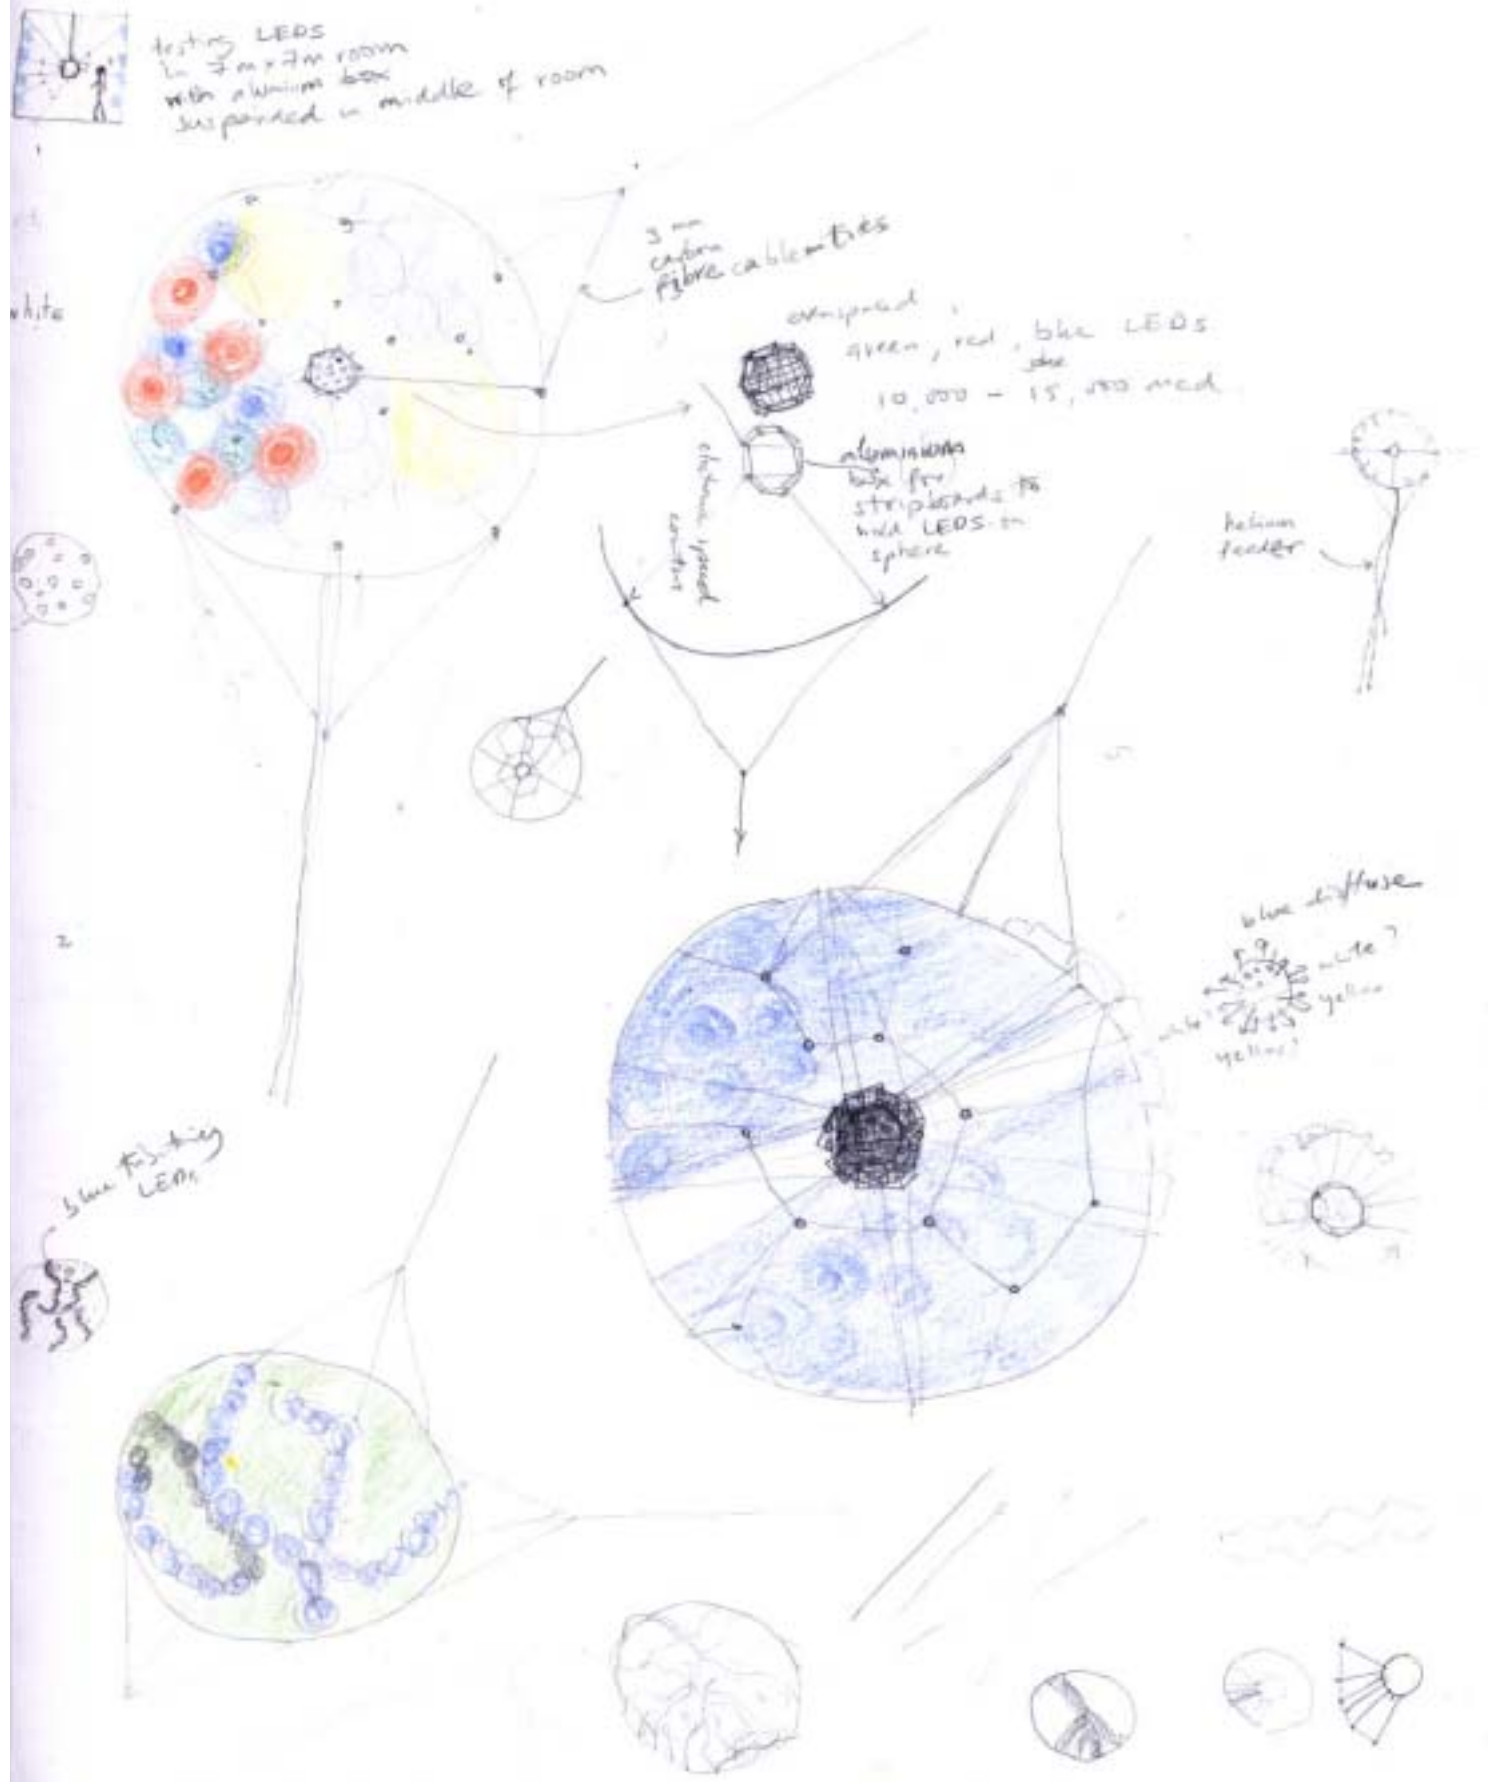 testing LEDS
in 7m x 7m room
with aluminium box
suspended in middle of room
3 mm
carbon
fibre cable ties
white
green, red, blue LEDS
10,000 - 15,000 mcd
aluminium
box for
stripboards to
hold LEDS in
sphere
helium
feeder
blue diffuse
white?
yellow
white?
yellow?
2
blue
LEDs